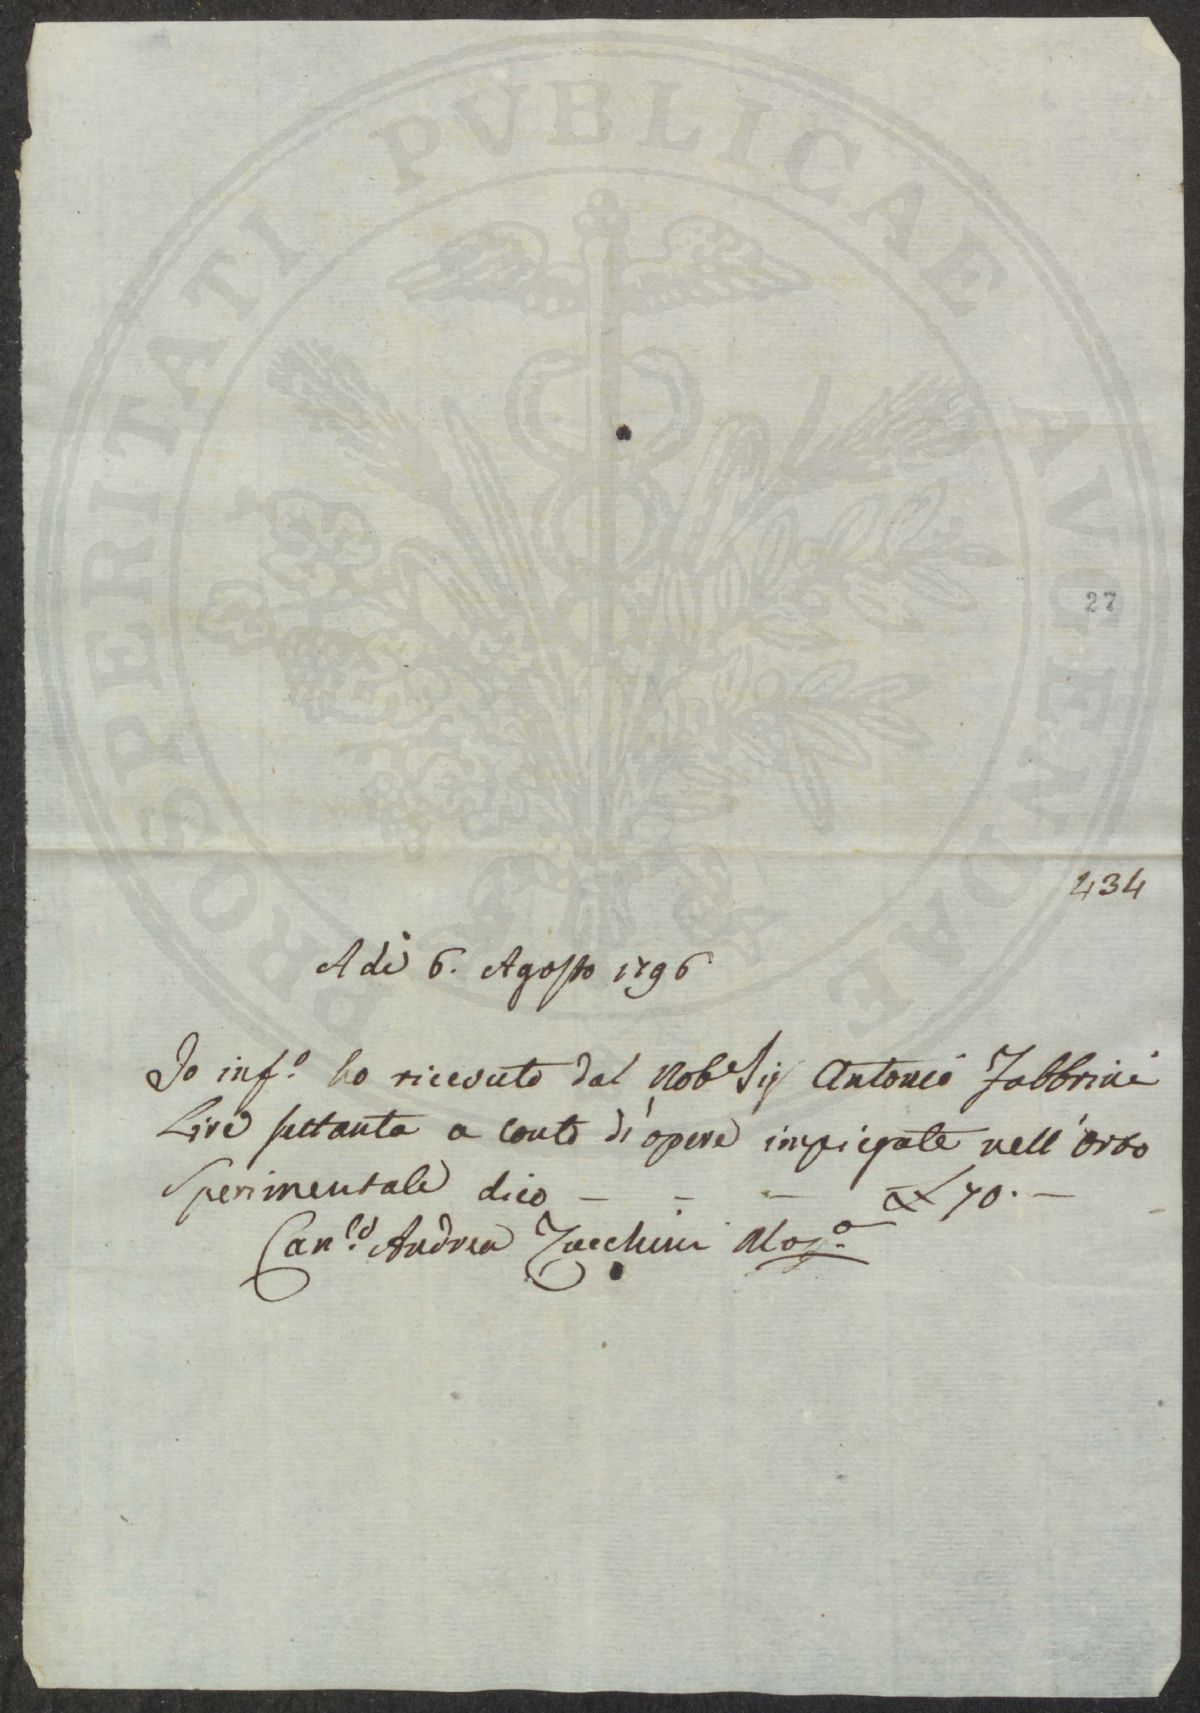 PROSPERITATI PVBLICAE AVGENDAE
27
434
A dì 6. Agosto 1796
Io inf.o ho ricevuto dal Nob. Sig Antonio Fabbrini
Lire settanta a conto di opere impiegate nell'Orto
Sperimentale dico — — — £ 70. —
Can.co Andrea Zucchini